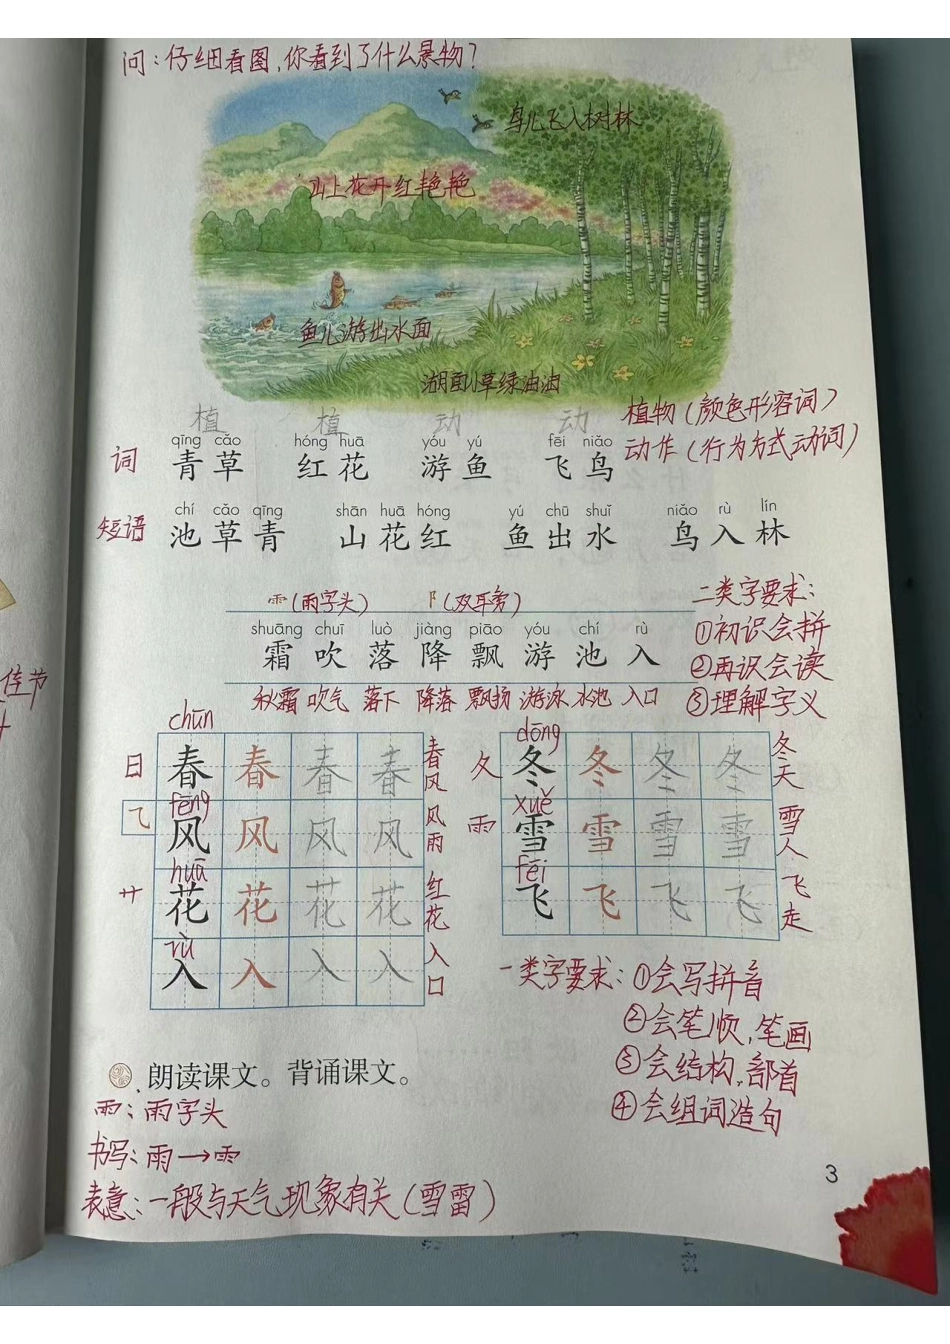 问：仔细看图，你看到了什么景物？
鸟儿飞入树林
山上花开红艳艳
鱼儿游出水面
湖面小草绿油油
植 植 动 动
植物（颜色形容词）
动作（行为方式动词）
qīng cǎo hóng huā yóu yú fēi niǎo
词 青草 红花 游鱼 飞鸟
chí cǎo qīng shān huā hóng yú chū shuǐ niǎo rù lín
短语 池草青 山花红 鱼出水 鸟入林
⻗（雨字头） 阝（双耳旁）
shuāng chuī luò jiàng piāo yóu chí rù
霜 吹 落 降 飘 游 池 入
秋霜 吹气 落下 降落 飘扬 游泳 水池 入口
二类字要求：
①初识会拼
②再识会读
③理解字义
佳节
chūn
日 春 春 春 春 春风
fēng
⺄ 风 风 风 风 风雨
huā
艹 花 花 花 花 红花
rù
入 入 入 入 入口
dōng
夂 冬 冬 冬 冬 冬天
xuě
⻗ 雪 雪 雪 雪 雪人
fēi
飞 飞 飞 飞 飞走
一类字要求：①会写拼音
②会笔顺，笔画
③会结构，部首
④会组词造句
朗读课文。背诵课文。
⻗：雨字头
书写：雨→⻗
表意：一般与天气现象有关（雪雷）
3